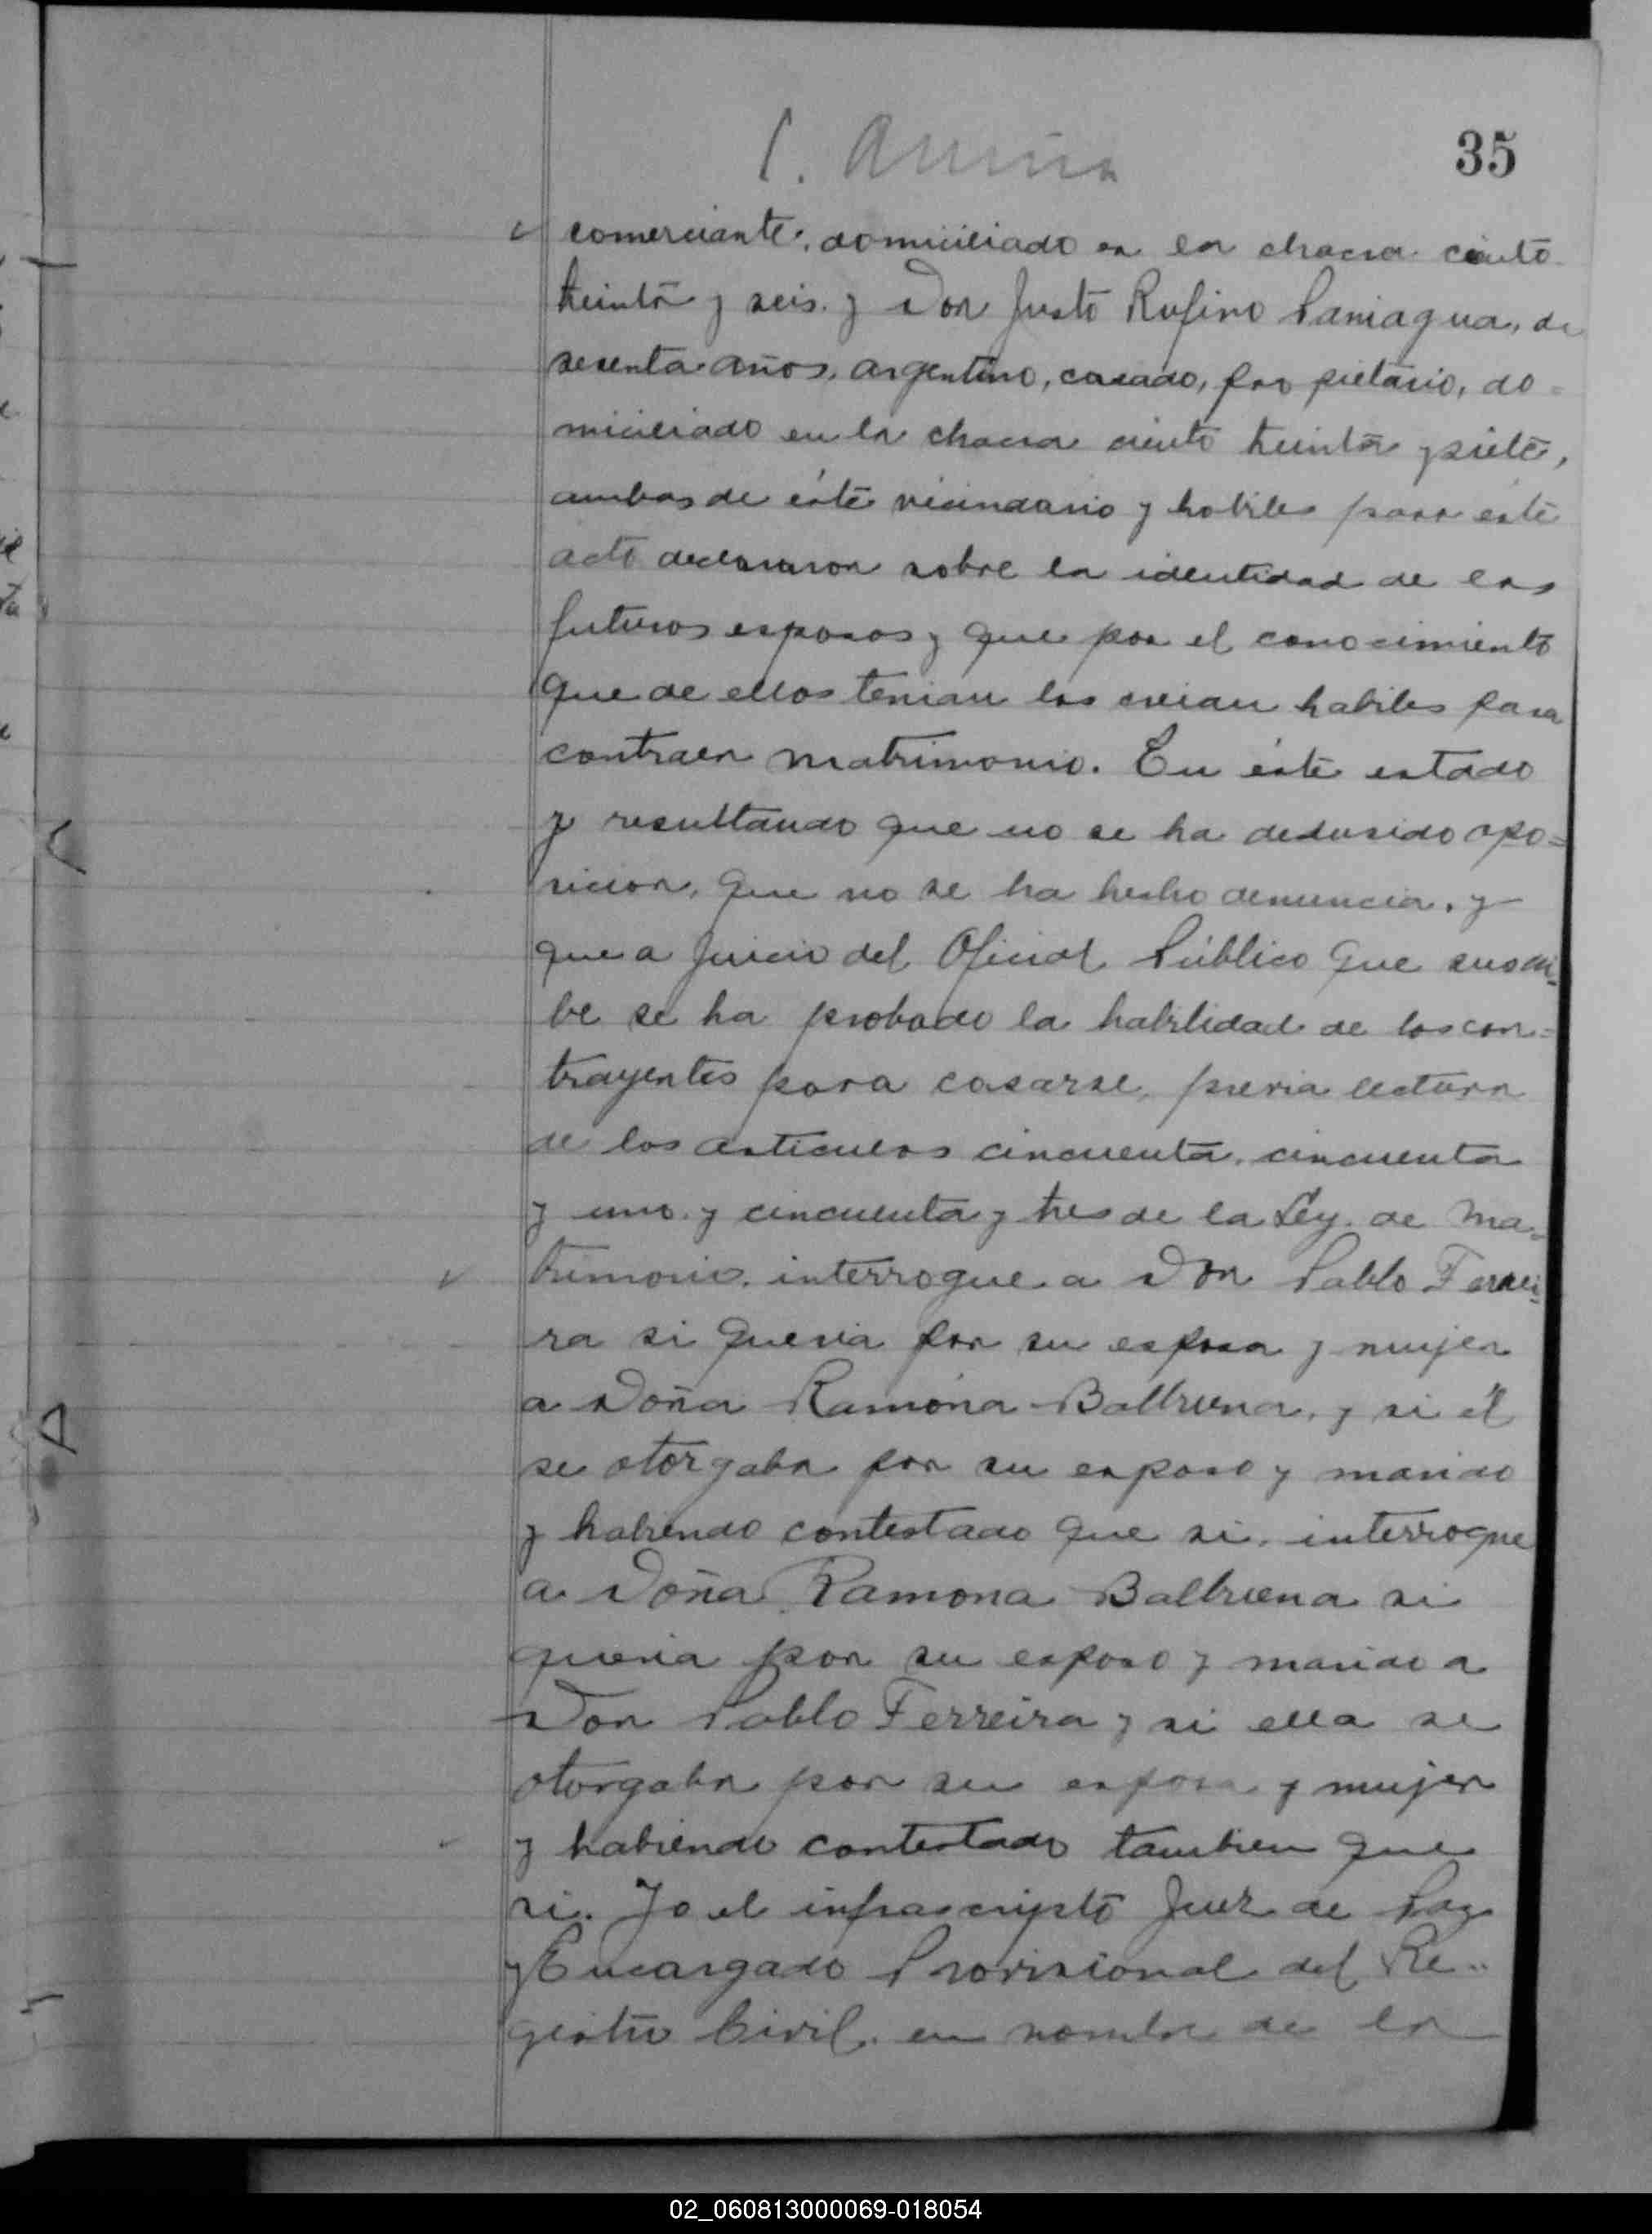 35
comerciante, domiciliado en la chacra ciento
treinta y seis. y Don Justo Rufino Paniagua, de
sesenta años, argentino, casado, propietario, do=
miciliado en la chacra ciento treinta y siete,
ambos de éste vecindario y habiles para éste
acto declararon sobre la identidad de los
futuros esposos y que por el conocimiento
que de ellos tenian los creian habiles para
contraer matrimonio. En éste estado
y resultando que no se ha dedusido opo=
sicion, que no se ha hecho denuncia, y
que a juicio del Oficial Público que suscri=
be se ha probado la habilidad de los con=
trayentes para casarse, previa lectura
de los articulos cincuenta, cincuenta
y uno y cincuenta y tres de la Ley de Ma=
trimonio, interrogue a Don Pablo Ferrei=
ra si queria por su esposa y mujer
a Doña Ramóna Balbuena, y si él
se otorgaba por su esposo y marido
y habiendo contestado que si, interrogue
a Doña Ramona Balbuena si
queria por su esposo y marido a
Don Pablo Ferreira y si ella se
otorgaba por su esposa y mujer
y habiendo contestado tambien que
si. Yo el infrascripto Juez de Paz
y Encargado Provisional del Re=
gistro Civil, en nombre de la
02_060813000069-018054